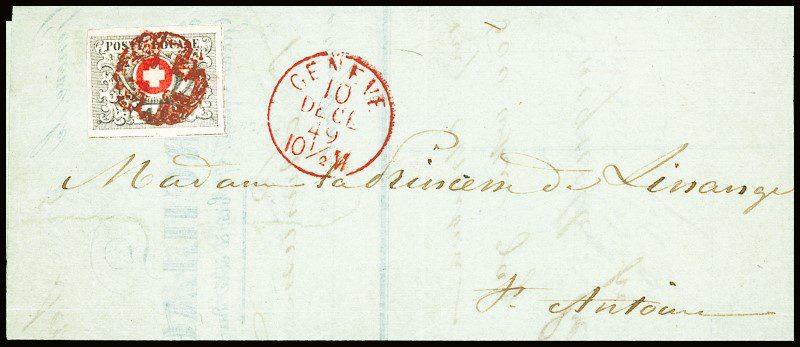 POSTE LOCALE
GENEVE
10
DECE
49
10½M
Madame la Princesse de Linange
St. Antoine